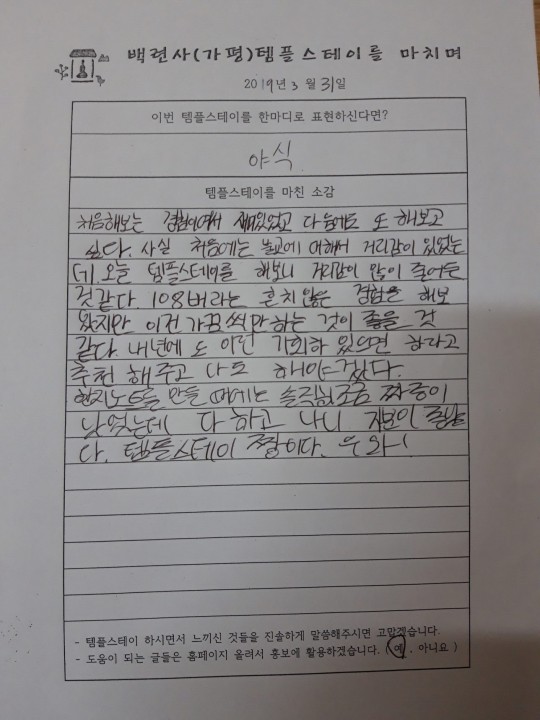 백련사(가평)템플스테이를 마치며
2019년 3월 31일
이번 템플스테이를 한마디로 표현하신다면?
야식
템플스테이를 마친 소감
처음해보는 경험이여서 재미있었고 다음에도 또 해보고
싶다. 사실 처음에는 불교에 대해서 거리감이 있었는
데. 오늘 템플스테이를 해보니 거리감이 많이 줄어든
것같다. 108배라는 흔치 않은 경험은 해보
왔지만 이건 가끔씩만 하는 것이 좋을 것
같다. 내년에 또 이런 기회가 있으면 하라고
추천 해주고 나도 해야겠다.
한지노트를 만들 때에는 솔직히 조금 짜증이
났었는데 다 하고 나니
다. 템플스테이 짱이다. 우와!
- 템플스테이 하시면서 느끼신 것들을 진솔하게 말씀해주시면 고맙겠습니다.
- 도움이 되는 글들은 홈페이지 올려서 홍보에 활용하겠습니다. ( 예 , 아니요 )